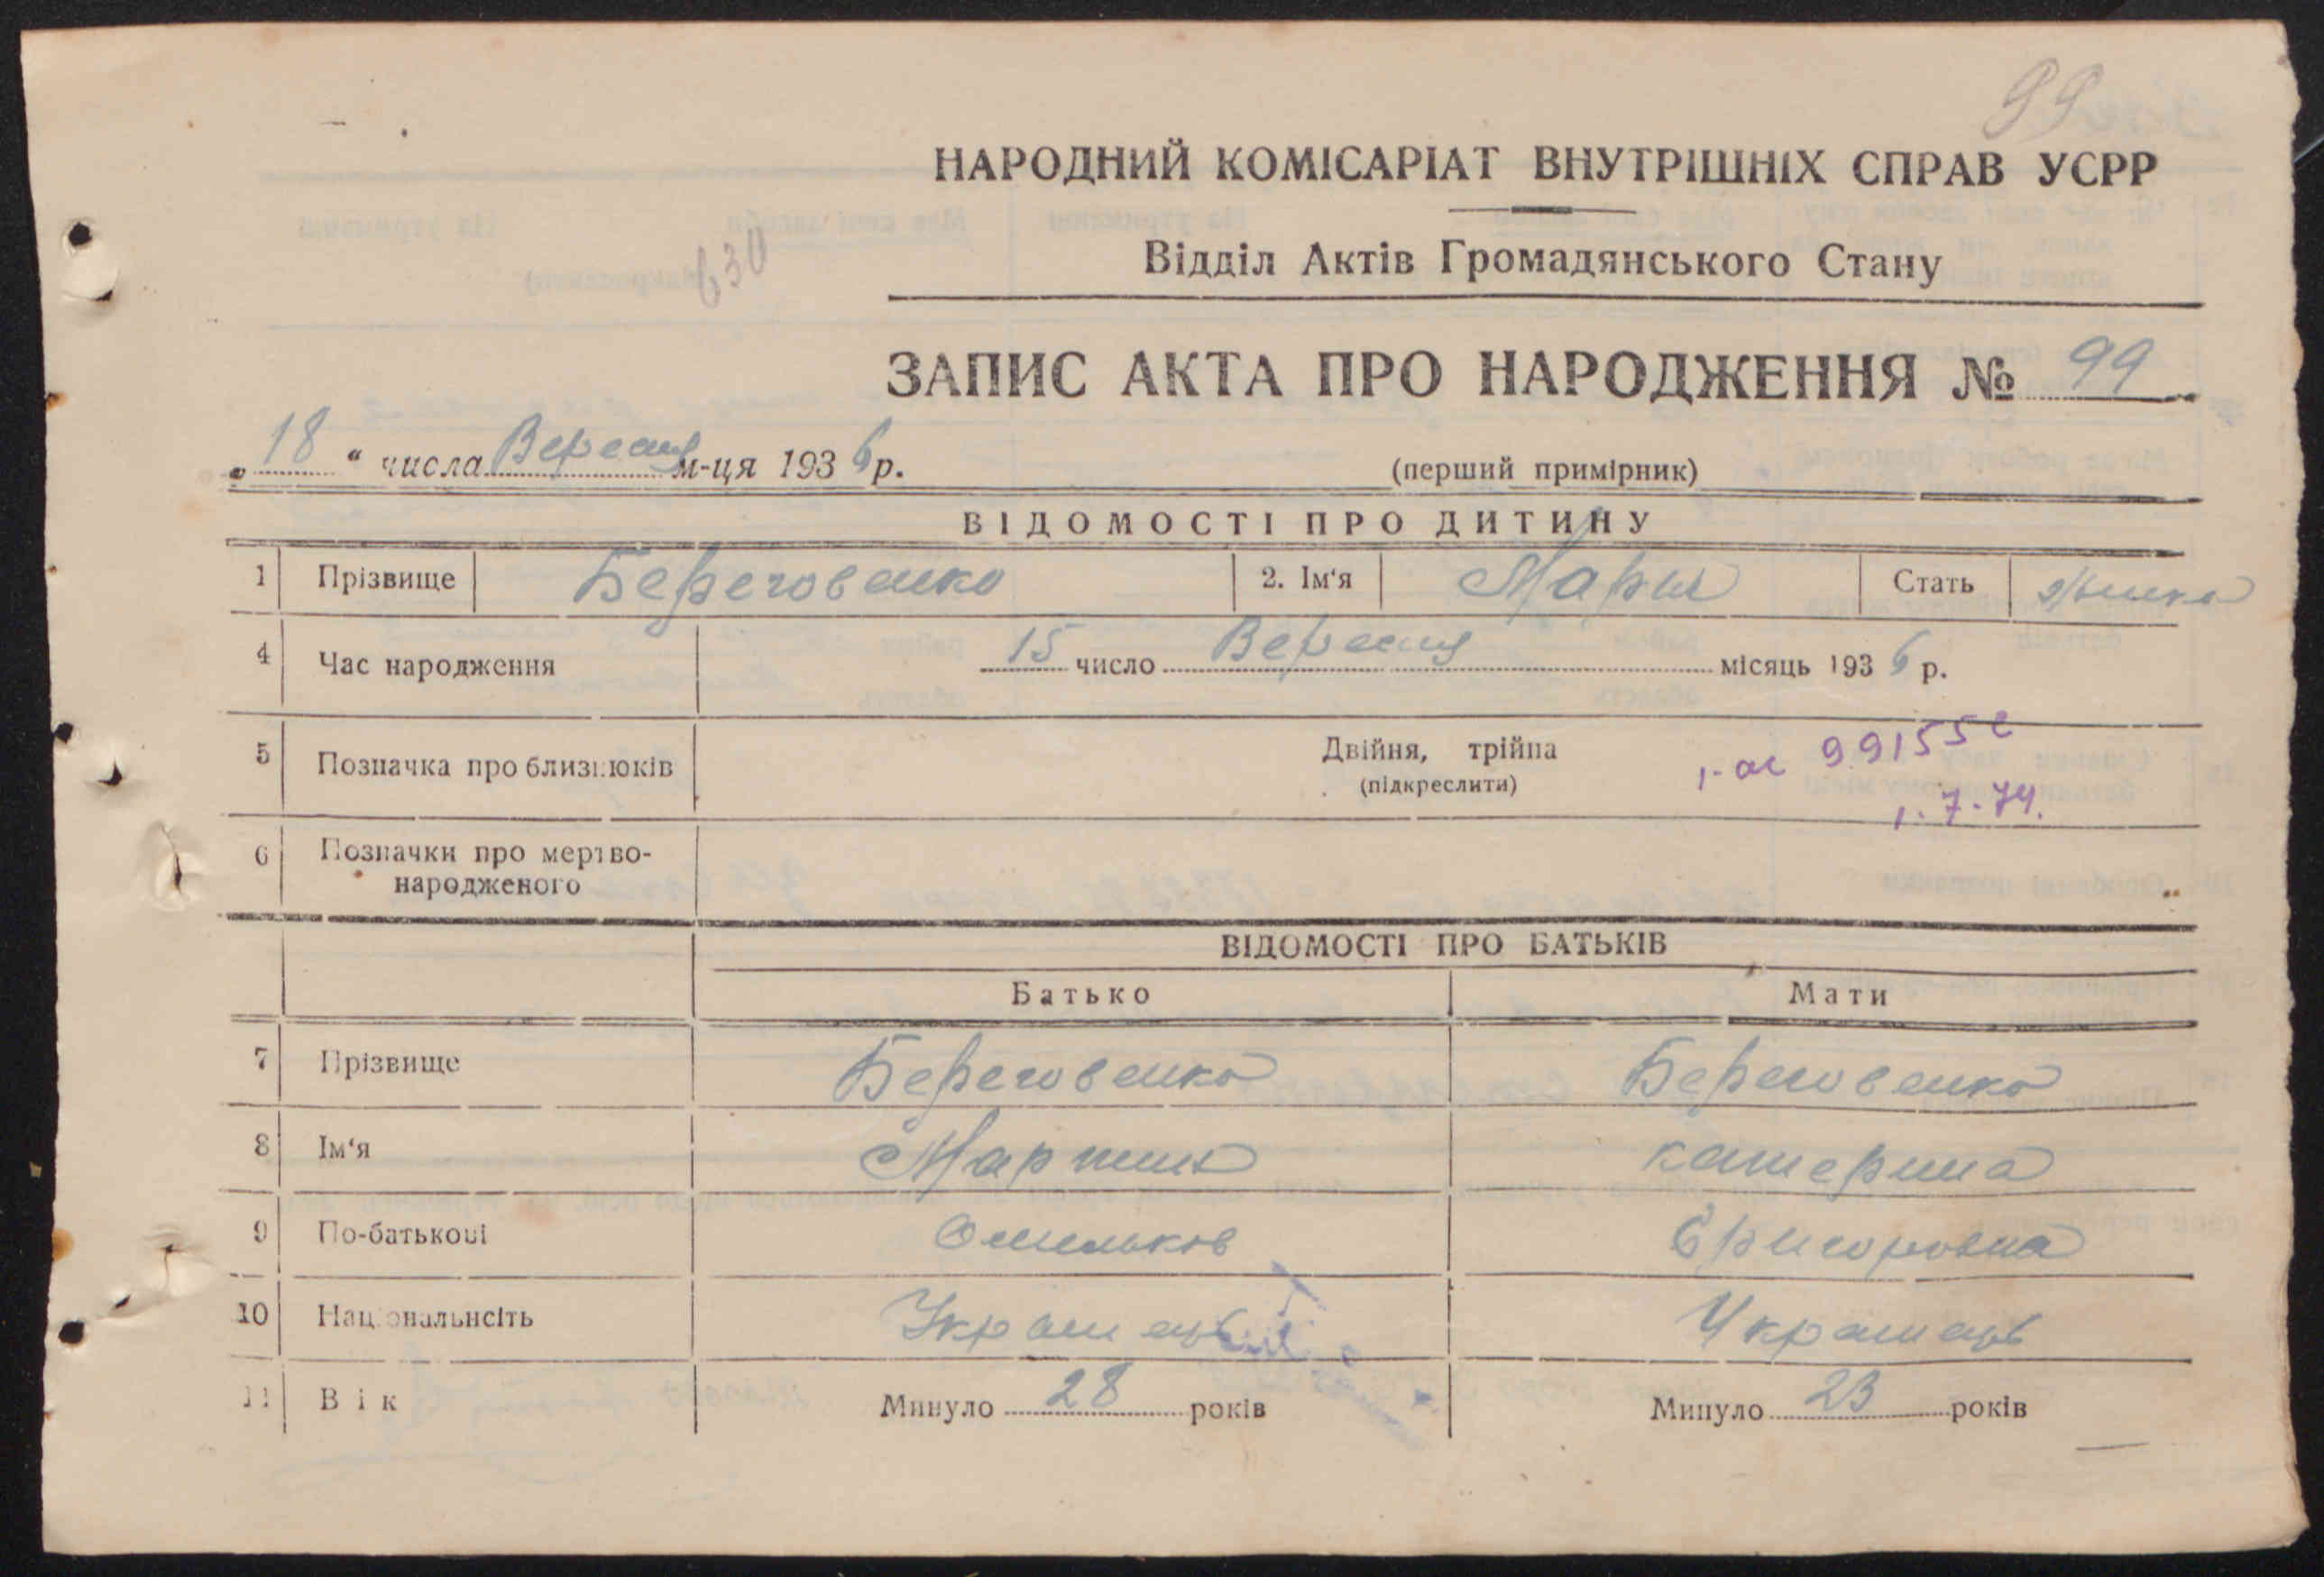 99
НАРОДНИЙ КОМІСАРІАТ ВНУТРІШНІХ СПРАВ УСРР
630
Відділ Актів Громадянського Стану
ЗАПИС АКТА ПРО НАРОДЖЕННЯ № 99
„18“ числа Вересня м-ця 1936 р.
(перший примірник)
ВІДОМОСТІ ПРО ДИТИНУ
1 Прізвище Береговенко 2. Ім'я Мария Стать
4 Час народження 15 число Вересня місяць 1936 р.
5 Позначка про близнюків Двійня, трійня
(підкреслити)
991552
1.7.74.
6 Позначки про мертво-
народженого
ВІДОМОСТІ ПРО БАТЬКІВ
Батько Мати
7 Прізвище Береговенко Береговенко
8 Ім'я Мартин Катерина
9 По-батькові Омельков Григоровна
10 Національнсіть Українець Українець
11 Вік Минуло 28 років Минуло 23 років